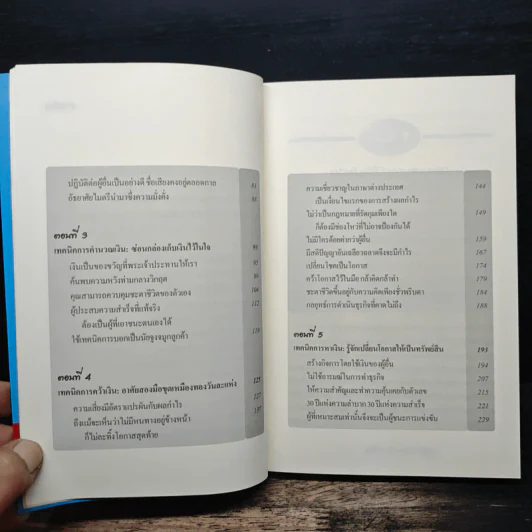 ปฏิบัติต่อผู้อื่นเป็นอย่างดี ชื่อเสียงคงอยู่ตลอดกาล
อัธยาศัยไมตรีนำมาซึ่งความมั่งคั่ง
ตอนที่ 3
เทคนิคการคำนวณเงิน: ซ่อนกล่องเก็บเงินไว้ในใจ
เงินเป็นของขวัญที่พระเจ้าประทานให้เรา 95
ค้นพบความหวังท่ามกลางวิกฤต
คุณสามารถควบคุมชะตาชีวิตของตัวเอง 104
ผู้ประสบความสำเร็จที่แท้จริง 112
ต้องเป็นผู้ที่เอาชนะตนเองได้
ใช้เทคนิคการบอกเป็นนัยจูงจมูกลูกค้า
ตอนที่ 4
เทคนิคการคว้าเงิน: อาศัยสองมือขุดเหมืองทองวันละแห่ง 125
ความเสี่ยงมีอัตราแปรผันกับผลกำไร 127
ถึงแม้จะเห็นว่าไม่มีหนทางอยู่ข้างหน้า 137
ก็ไม่ละทิ้งโอกาสสุดท้าย
ความเชี่ยวชาญในภาษาต่างประเทศ 144
เป็นเงื่อนไขแรกของการสร้างผลกำไร
ไม่ว่าเป็นกฎหมายที่รัดกุมเพียงใด 149
ก็ต้องมีช่องโหว่ที่ไม่อาจป้องกันได้
ไม่มีใครด้อยค่ากว่าผู้อื่น 159
มีสติปัญญาอันเฉลียวฉลาดจึงจะมีกำไร 167
เปลี่ยนโชคเป็นโอกาส 174
คว้าโอกาสไว้ในมือ กล้าคิดกล้าทำ 179
ชะตาชีวิตขึ้นอยู่กับความคิดเพียงชั่วพริบตา 184
กลยุทธ์การดำเนินธุรกิจที่คาดไม่ถึง 188
ตอนที่ 5
เทคนิคการหาเงิน: รู้จักเปลี่ยนโอกาสให้เป็นทรัพย์สิน 193
สร้างกิจการโดยใช้เงินของผู้อื่น 194
ไม่ใช้อารมณ์ในการทำธุรกิจ 207
ให้ความสำคัญและทำความคุ้นเคยกับตัวเลข 215
30 ปีแห่งความลำบาก 30 ปีแห่งความสำเร็จ 221
ผู้ที่เหมาะสมเท่านั้นจึงจะเป็นผู้ชนะการแข่งขัน 229